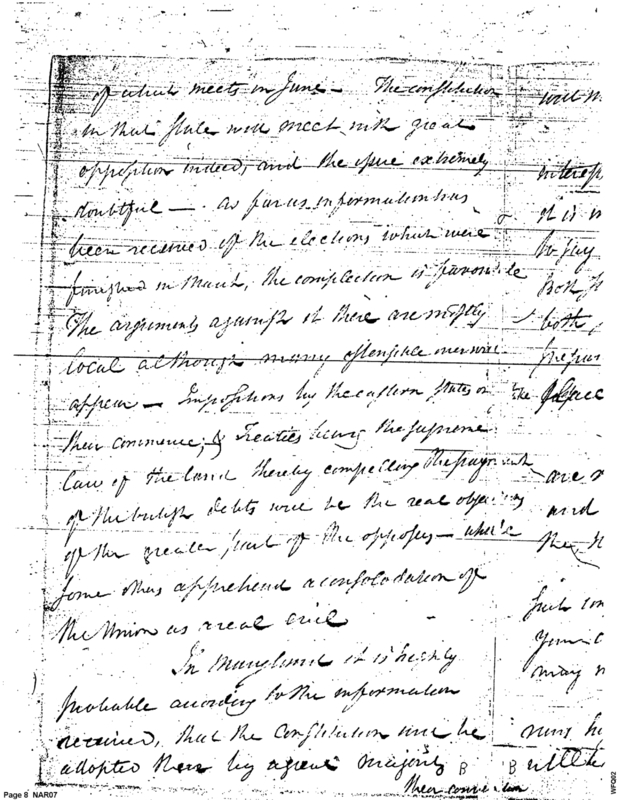 of which meets in June – The constitution
in that State will meet with great
opposition indeed, and the issue extremely
doubtful —. As far as information has
been received of the elections which were
finished in March, the complection is favorable
The arguments against it there are mostly
local although many ostensible ones will
appear — Impositions by the eastern States on
their commerce, & Treaties being the supreme
law of the land thereby compelling the payment
of the british debts will be the real objections
of the greater part of the opposers — while
some others apprehend a consolodation of
the Union as a real evil
In Maryland it is highly
probable according to the information
received, that the Constitution will be
adopted there by a great majority
Their convention
will
it is
to say
both
both
the
are
and
the
such
may
B B
Page 8 NAR07
WFQ02